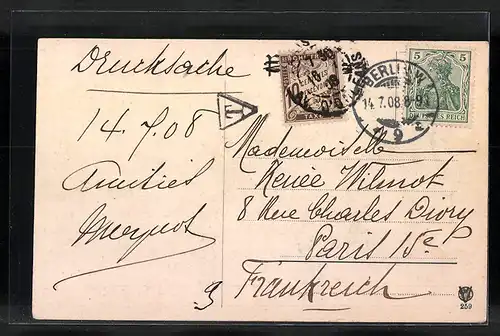 Drucksache
14.7.08
Amitiés
T
TAXE
BERLIN.W.
14.7.08.8-9N
9
5 5
DEUTSCHES REICH
Mademoiselle
Renée Wilmot
8 Rue Charles Divry
Paris 15e
Frankreich
259